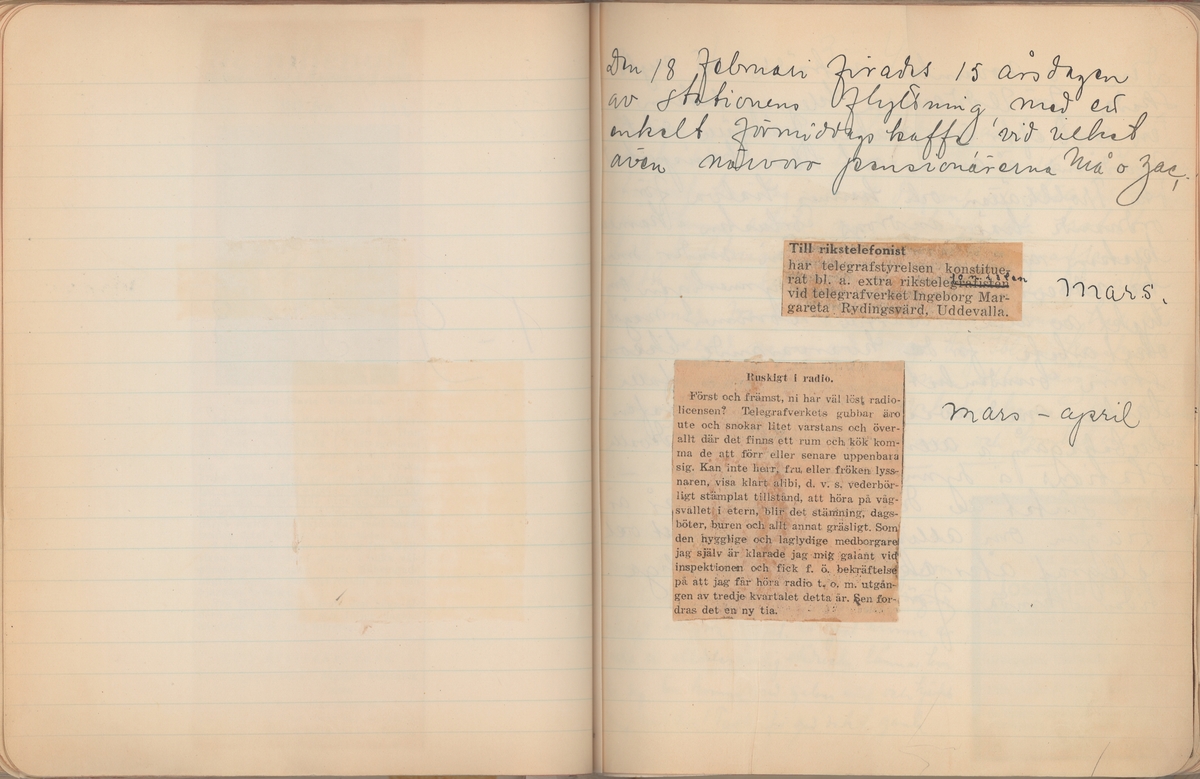 Den 18 februari firades 15 årsdagen
av stationens flyttning med en
enkelt förmiddags kaffe vid vilket
även närvoro pensionärerna Må o Zac.
Till rikstelefonist
har telegrafstyrelsen konstitue-
rat bl. a. extra rikstelegrafisten
vid telegrafverket Ingeborg Mar-
gareta Rydingsvärd, Uddevalla.
Mars.
Ruskigt i radio.
Först och främst, ni har väl löst radio-
licensen? Telegrafverkets gubbar äro
ute och snokar litet varstans och över-
allt där det finns ett rum och kök kom-
ma de att förr eller senare uppenbara
sig. Kan inte herr, fru eller fröken lyss-
naren, visa klart alibi, d. v. s. vederbör-
ligt stämplat tillstånd, att höra på våg-
svallet i etern, blir det stämning, dags-
böter, buren och allt annat gräsligt. Som
den hygglige och laglydige medborgare
jag själv är klarade jag mig galant vid
inspektionen och fick f. ö. bekräftelse
på att jag får höra radio t. o. m. utgån-
gen av tredje kvartalet detta år. Sen for-
dras det en ny tia.
mars - april